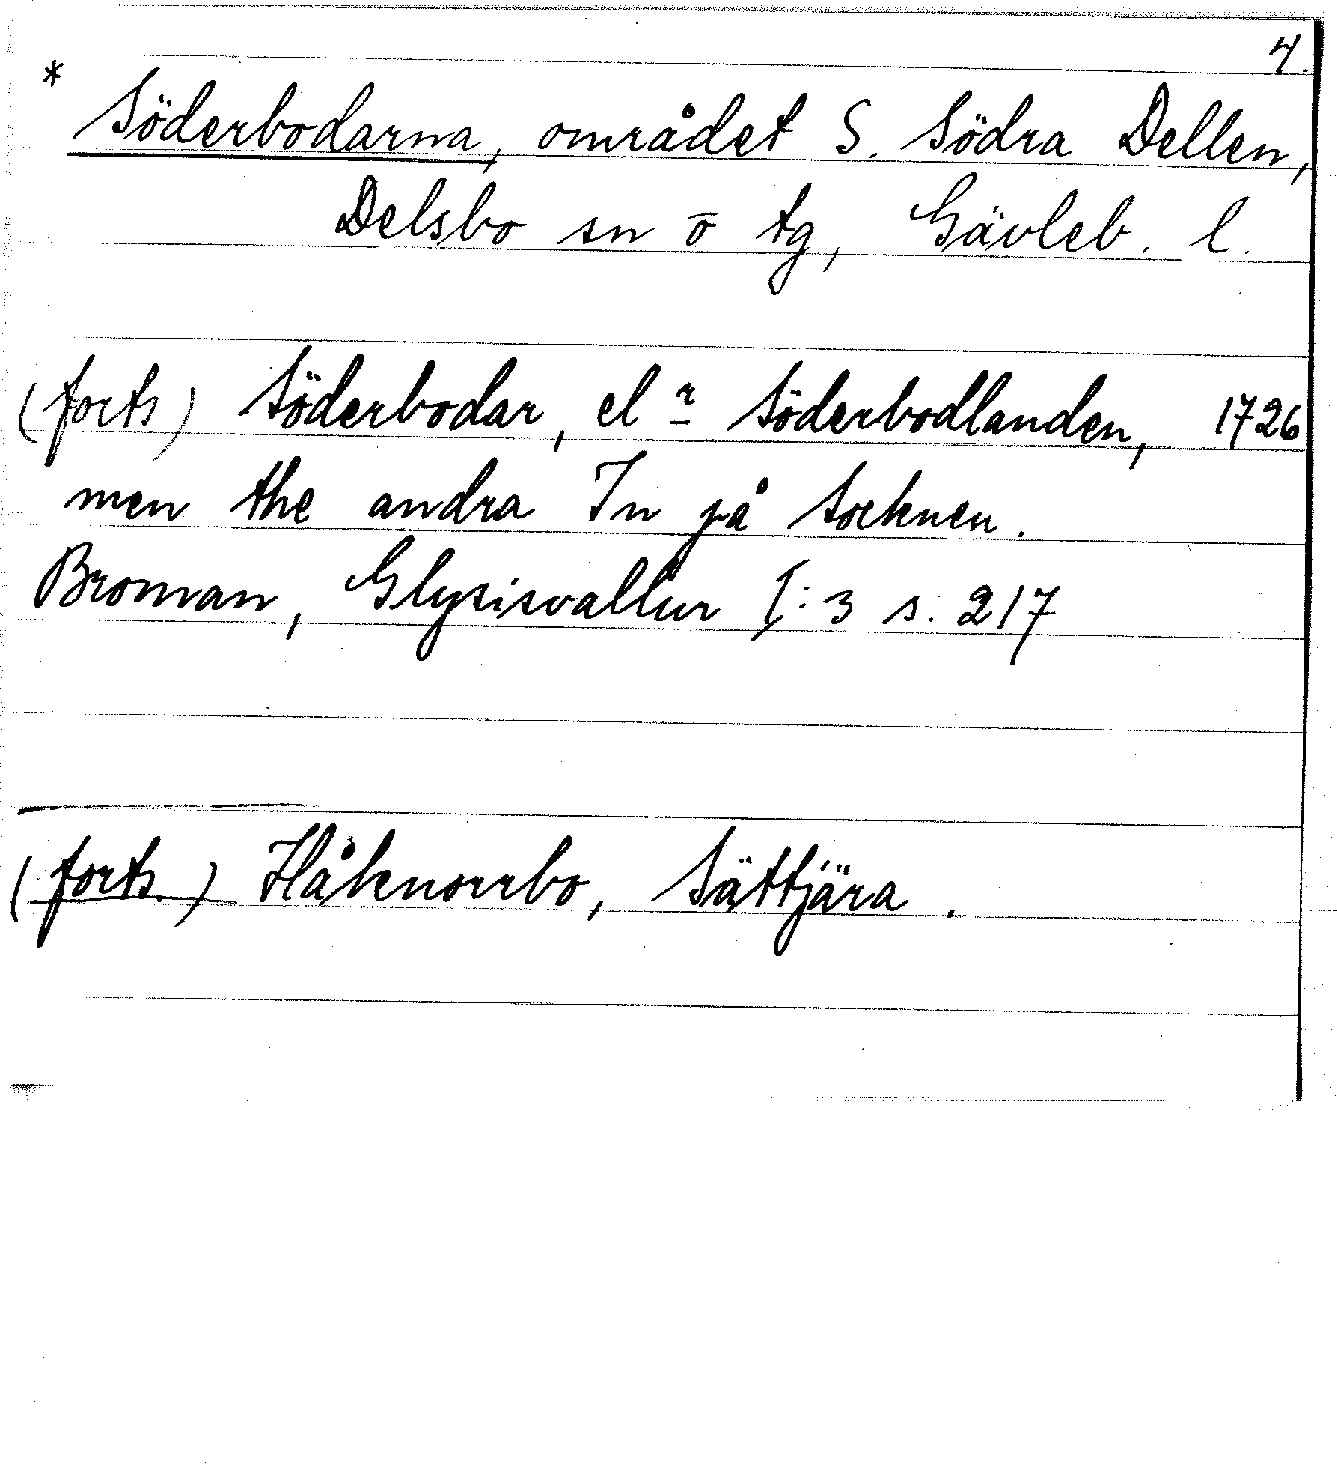 4.
* Söderbodarna, området S. Södra Dellen,
Delsbo sn o tg, Gävleb. l.
(forts) Söderbodar, el r Söderbodlanden, 1726
men the andra In på Socknen.
Broman, Glysisvallur I:3 s. 217
(forts.) Håknorrbo, Sättjära.